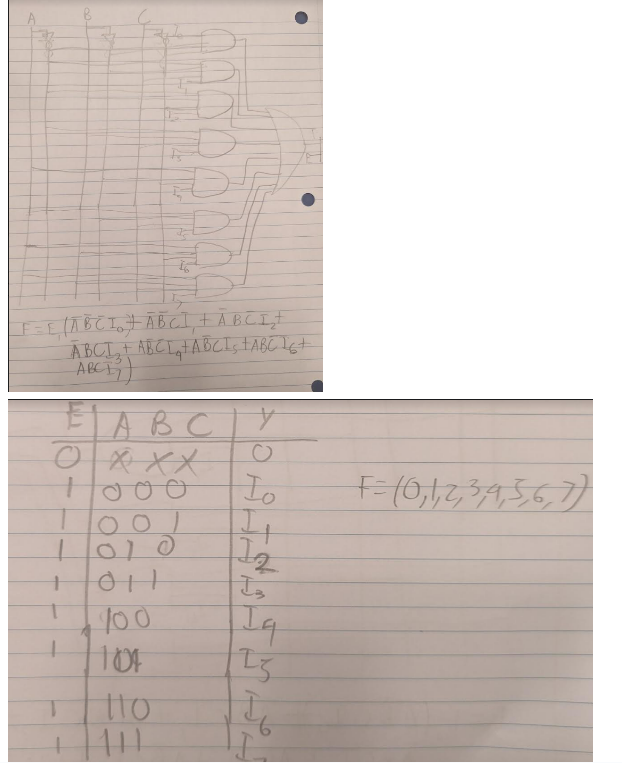 A B C
I₀
I₁
I₃
I₄
I₅
I₆
I₇
F = E, (A̅B̅C̅I₀ + A̅B̅CI₁ + A̅BC̅I₂ +
A̅BCI₃ + AB̅C̅I₄ + AB̅CI₅ + ABC̅I₆ +
ABCI₇)
E A B C Y
0 X X X 0
1 0 0 0 I₀
1 0 0 1 I₁
1 0 1 0 I₂
1 0 1 1 I₃
1 1 0 0 I₄
1 1 0 1 I₅
1 1 1 0 I₆
1 1 1 1
F = (0,1,2,3,4,5,6,7)